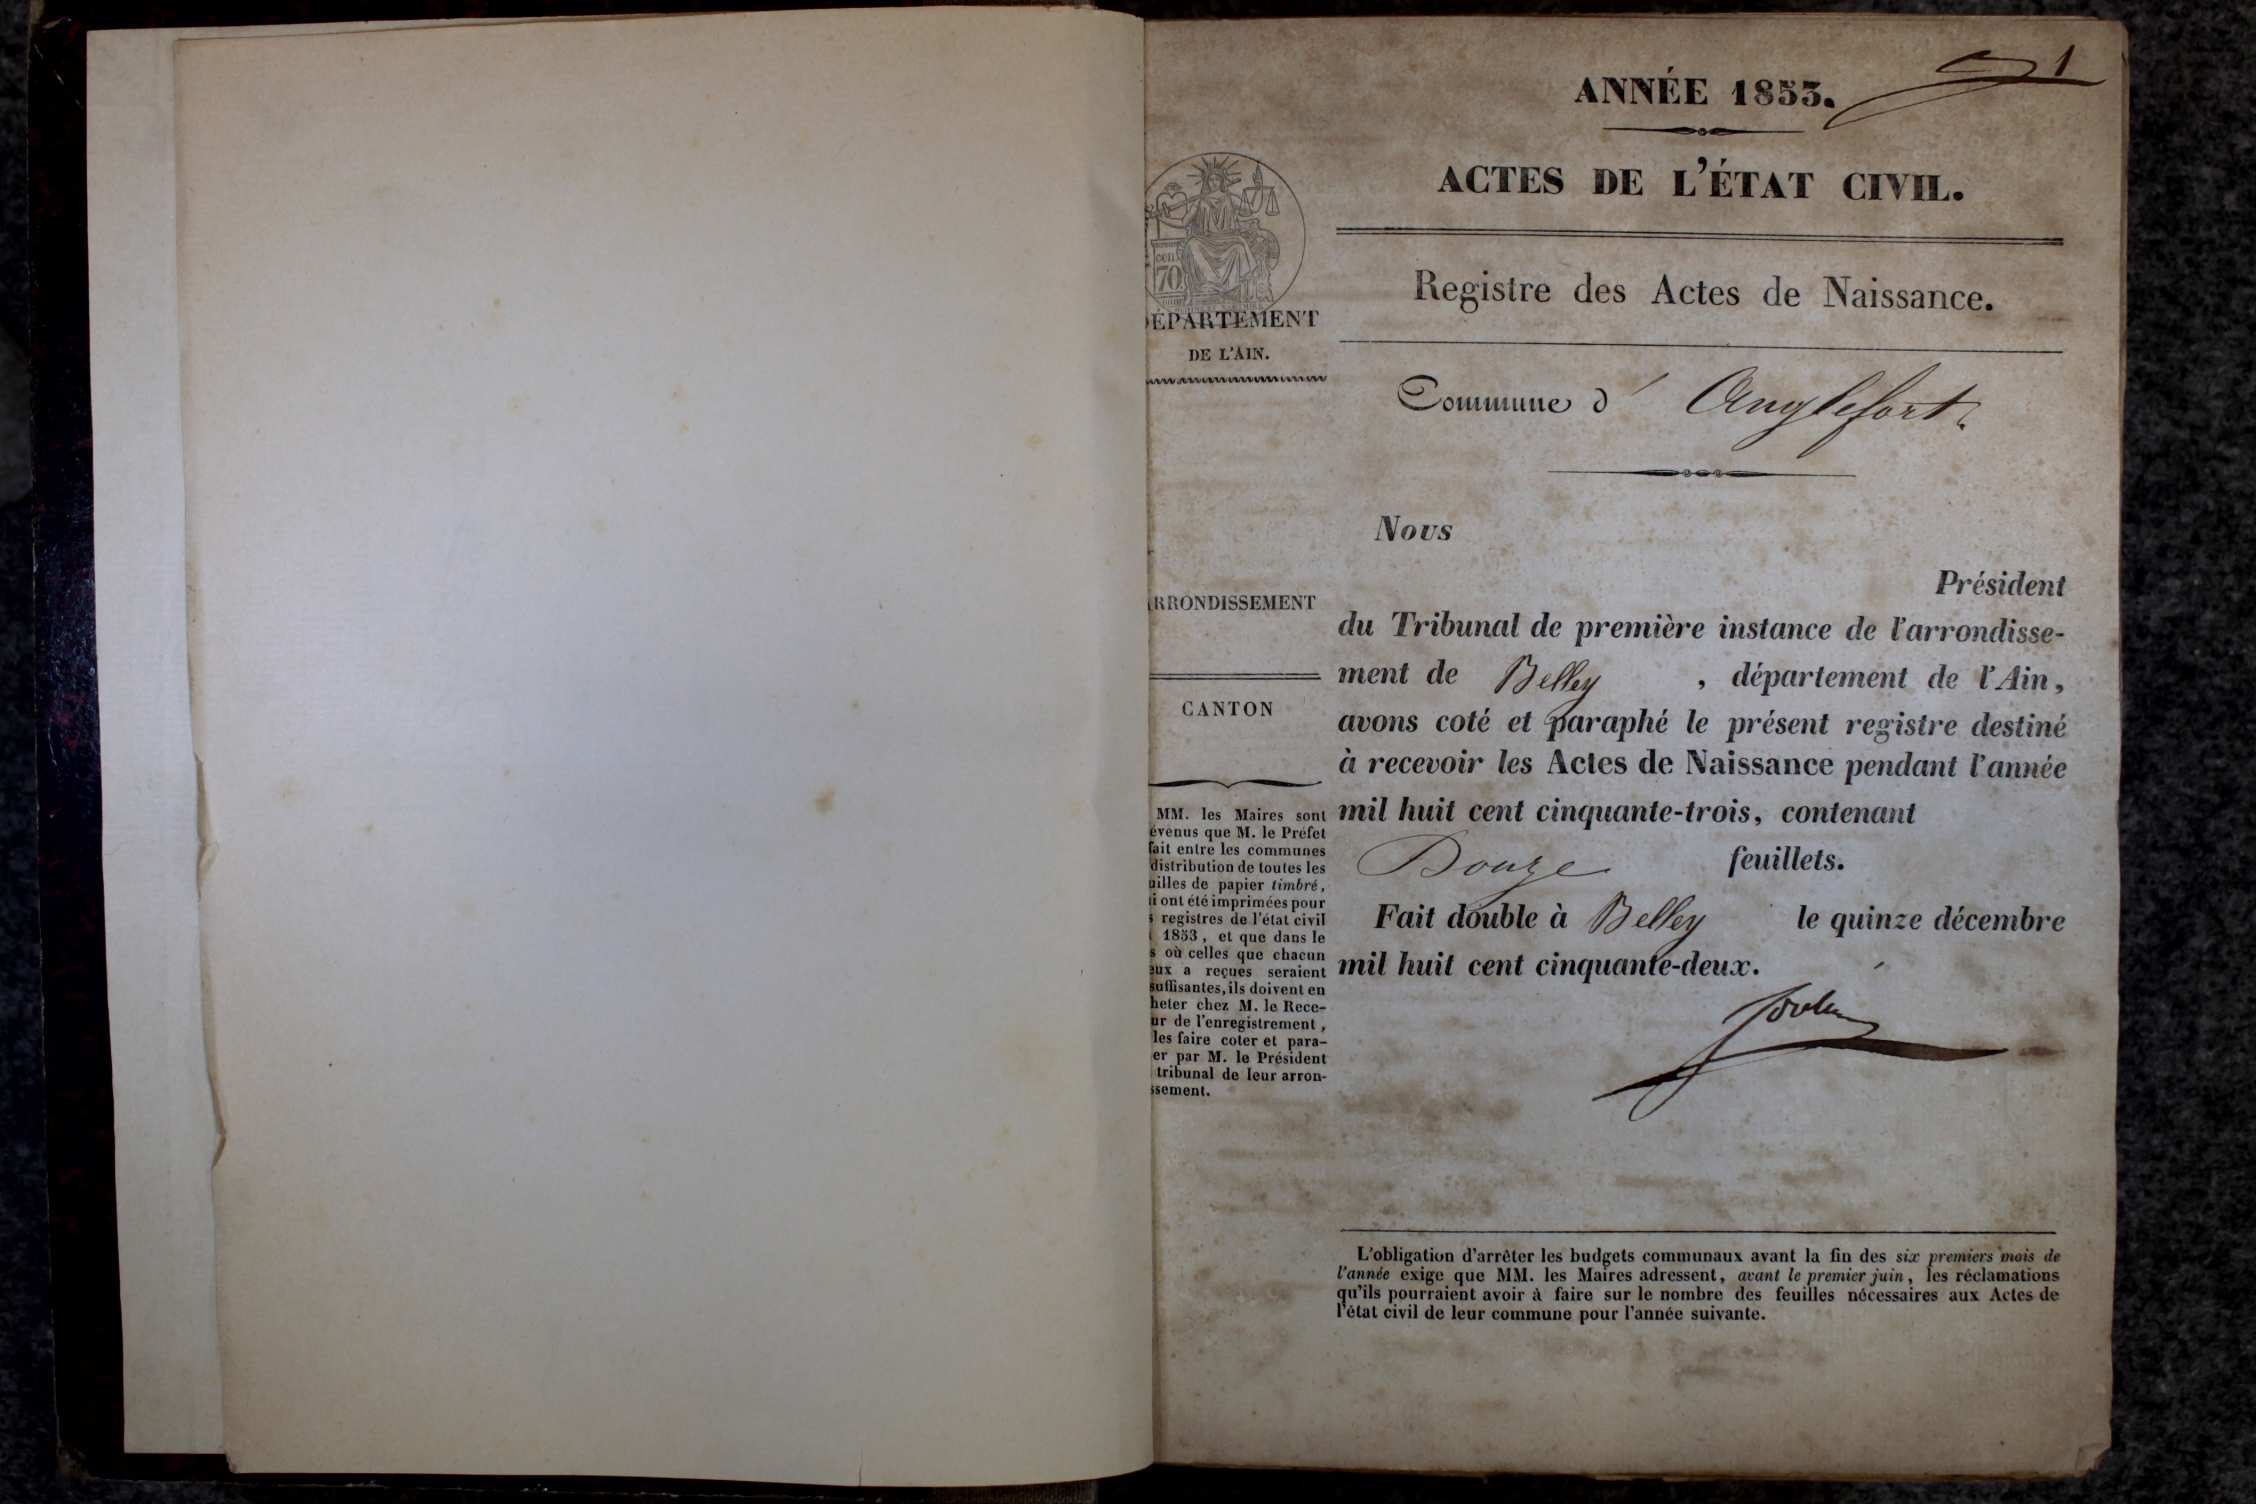 1
ANNÉE 1853.
ACTES DE L'ÉTAT CIVIL.
Registre des Actes de Naissance.
Commune d' Anglefort.
Nous
Président
du Tribunal de première instance de l'arrondisse-
ment de Belley , département de l'Ain,
avons coté et paraphé le présent registre destiné
à recevoir les Actes de Naissance pendant l'année
mil huit cent cinquante-trois, contenant
Douze feuillets.
Fait double à Belley le quinze décembre
mil huit cent cinquante-deux.
L'obligation d'arrêter les budgets communaux avant la fin des six premiers mois de
l'année exige que MM. les Maires adressent, avant le premier juin, les réclamations
qu'ils pourraient avoir à faire sur le nombre des feuilles nécessaires aux Actes de
l'état civil de leur commune pour l'année suivante.
cen.
70
ÉPARTEMENT
DE L'AIN.
RRONDISSEMENT
CANTON
MM. les Maires sont
évenus que M. le Préfet
fait entre les communes
distribution de toutes les
uilles de papier timbré,
i ont été imprimées pour
s registres de l'état civil
1853, et que dans le
s où celles que chacun
eux a reçues seraient
suffisantes, ils doivent en
heter chez M. le Rece-
ur de l'enregistrement,
les faire coter et para-
er par M. le Président
tribunal de leur arron-
ssement.